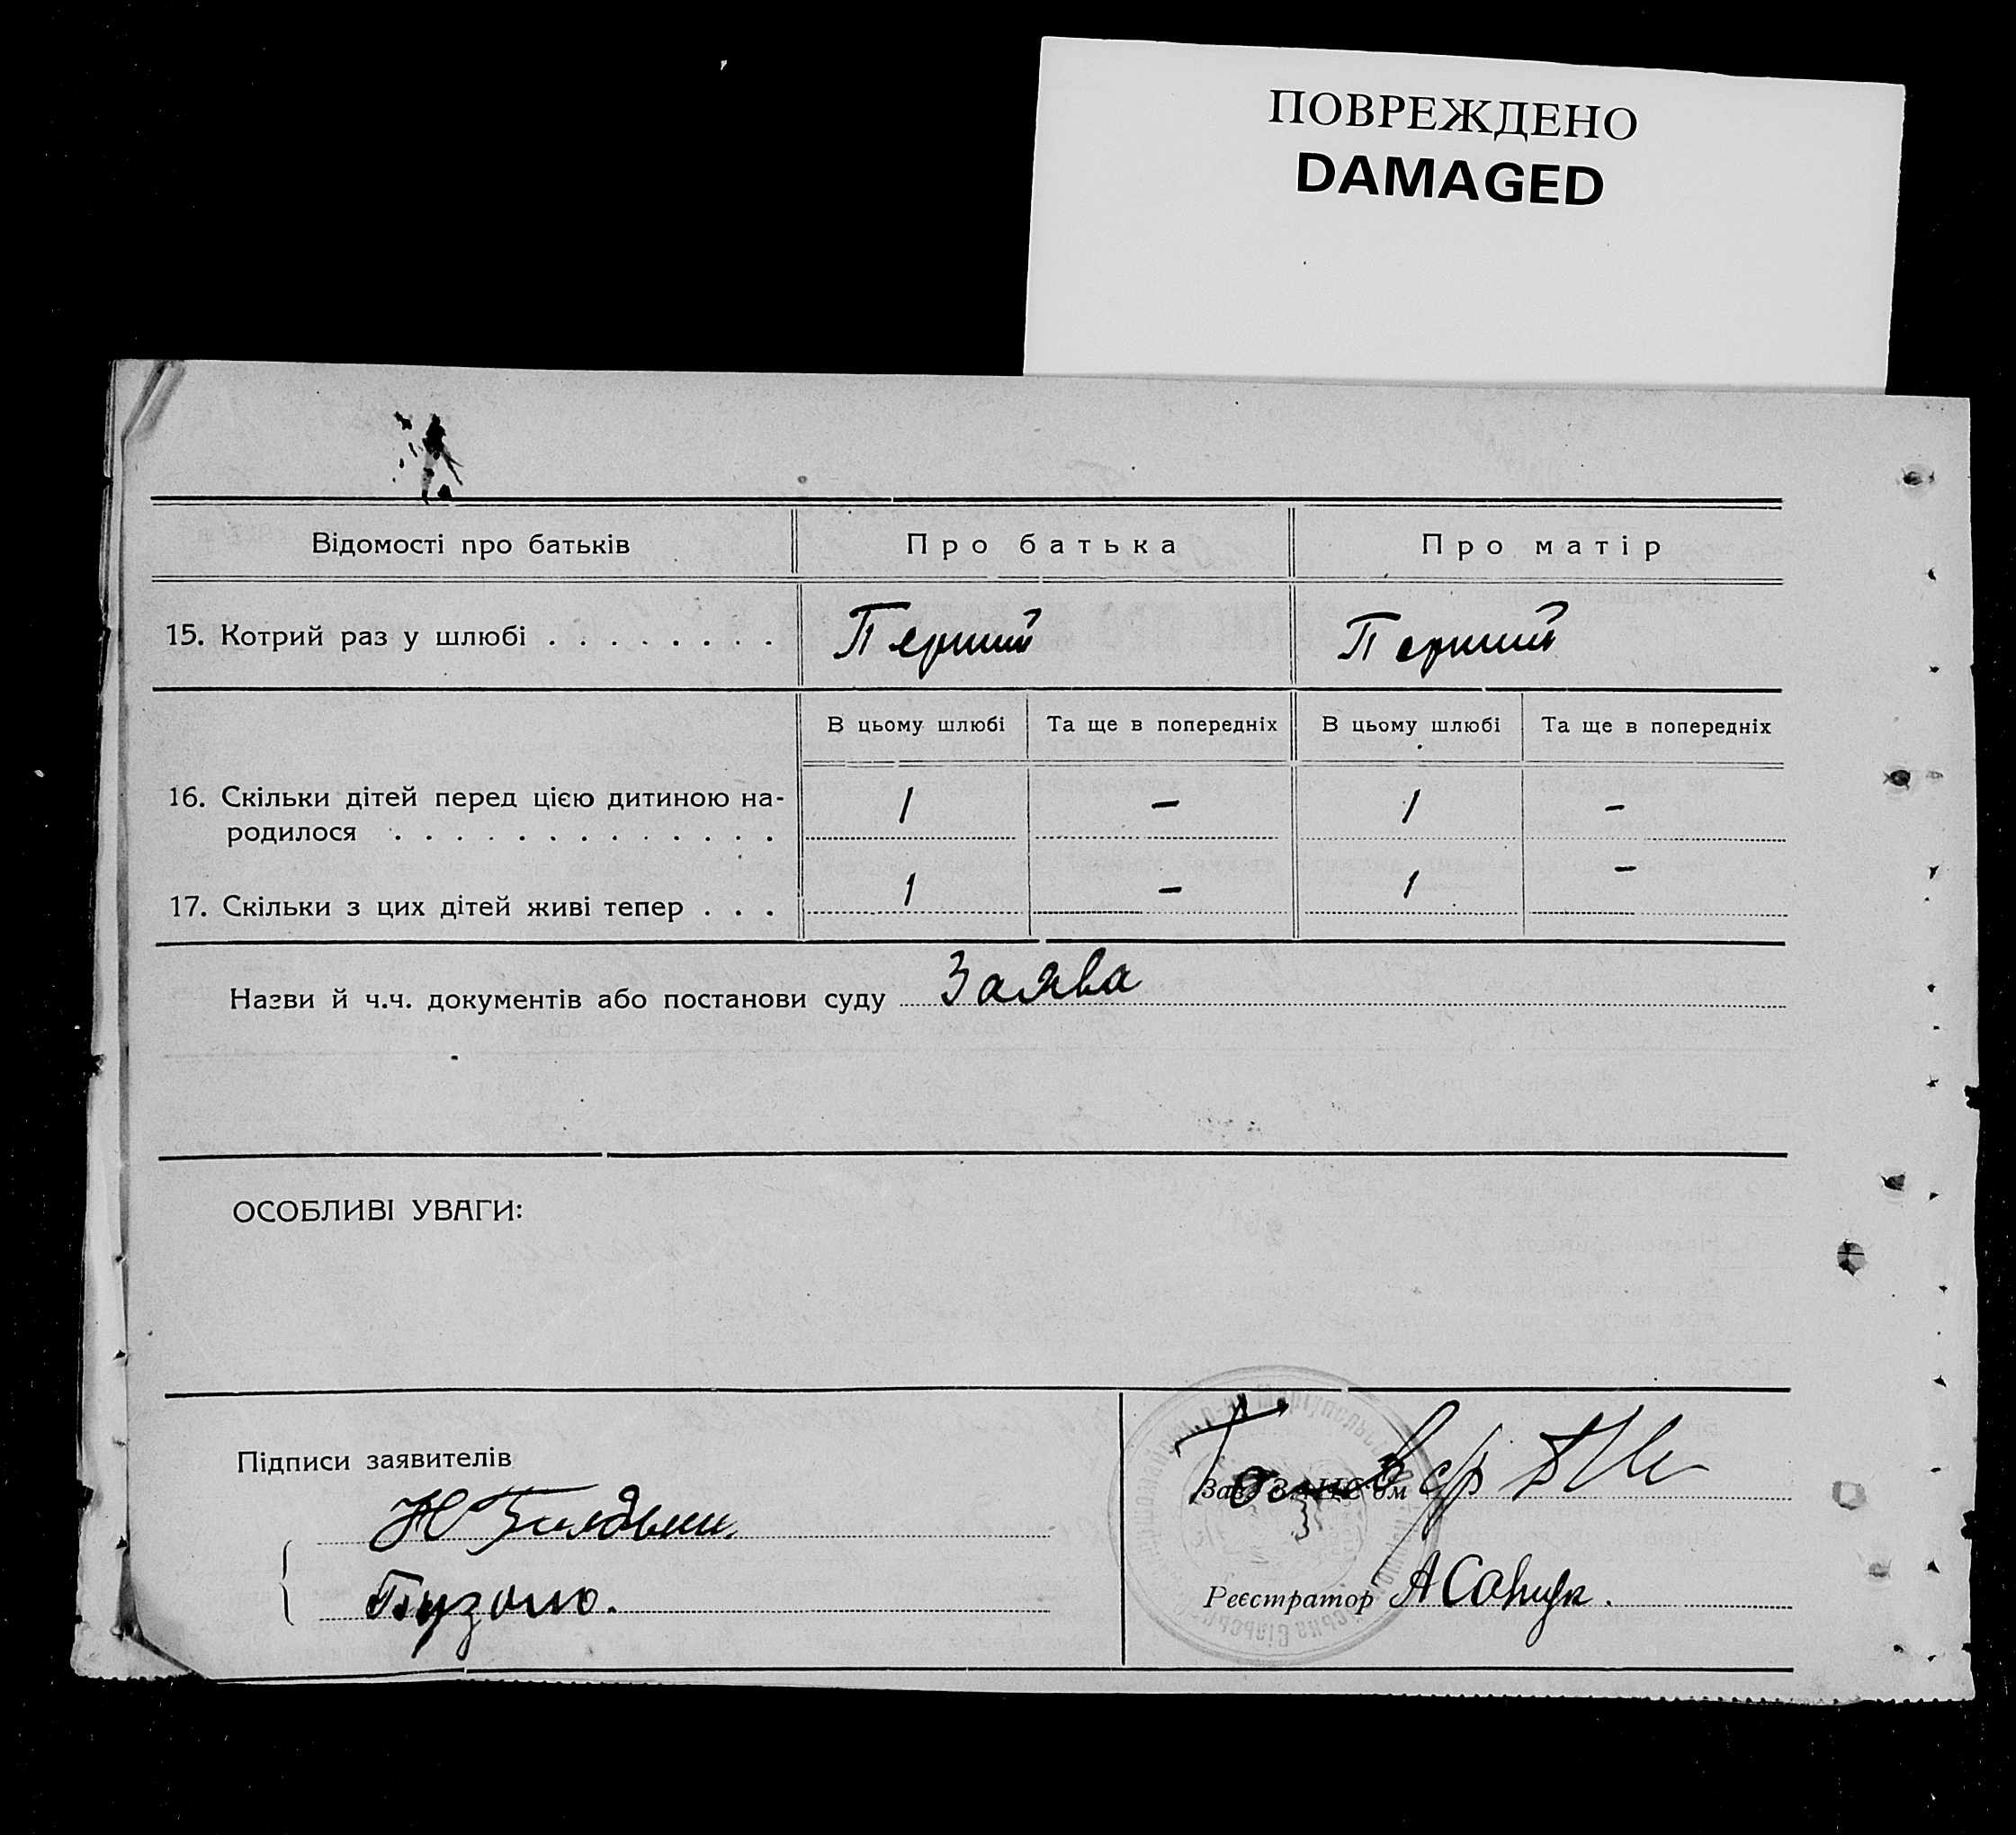 ПОВРЕЖДЕНО
DAMAGED
Відомості про батьків
Про батька
Про матір
15. Котрий раз у шлюбі . . . . . . . .
Перший
Перший
В цьому шлюбі
Та ще в попередніх
В цьому шлюбі
Та ще в попередніх
16. Скільки дітей перед цією дитиною на-
родилося . . . . . . . . . . . . .
1
–
1
–
17. Скільки з цих дітей живі тепер . . .
1
–
1
–
Назви й ч.ч. документів або постанови суду Заява
ОСОБЛИВІ УВАГИ:
Підписи заявителів
Зав. ЗАНС'ом
Реєстратор